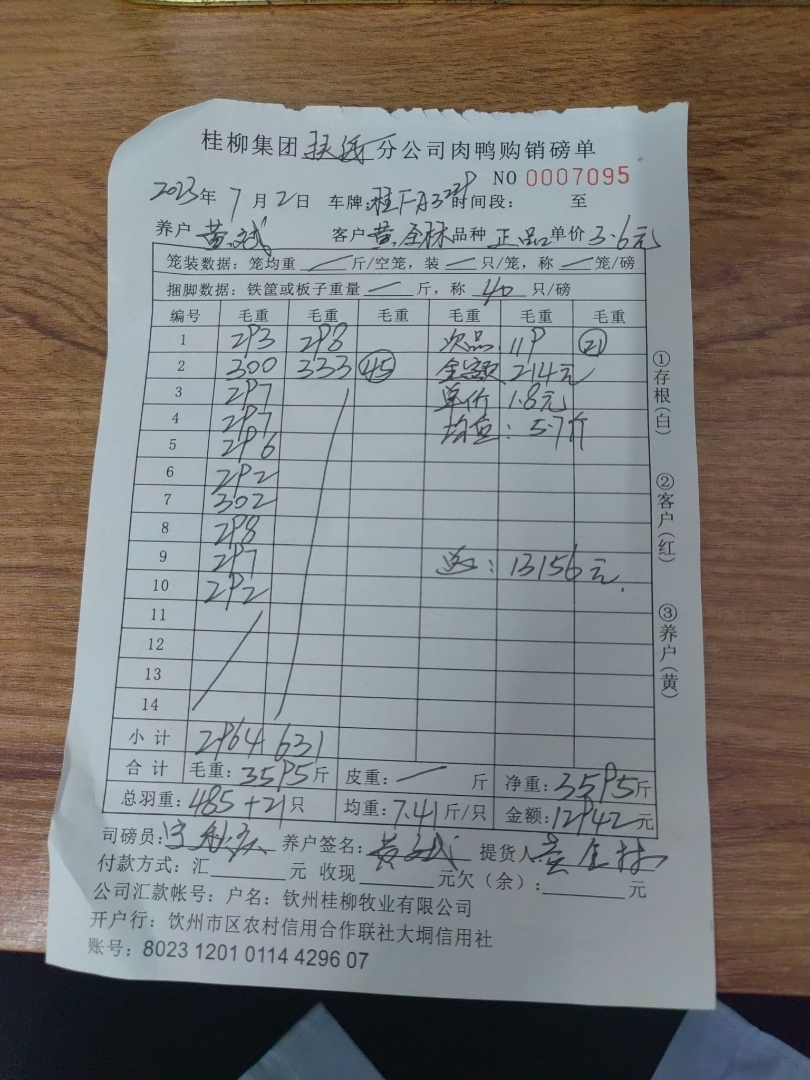 桂柳集团扶绥分公司肉鸭购销磅单
NO 0007095
2023年 7月 2日 车牌: 时间段: 至
养户 黄 客户 黄全林 品种 正品 单价 3.6元
笼装数据: 笼均重 — 斤/空笼, 装 — 只/笼, 称 — 笼/磅
捆脚数据: 铁筐或板子重量 — 斤, 称 40 只/磅
编号 毛重 毛重 毛重 毛重 毛重 毛重
1 293 298 次品 119 21
2 300 333 45 金额 214元
3 297 单价 1.8元
4 297 均重: 5.7斤
5 296
6 292
7 302
8 298
9 297 总: 13156元.
10 292
11
12
13
14
小计 2964 631
合计 毛重: 3595斤 皮重: — 斤 净重: 3595斤
总羽重: 485+21只 均重: 7.41斤/只 金额: 12942元
司磅员: 养户签名: 黄 提货人 黄全林
付款方式: 汇 元 收现 元欠(余): 元
公司汇款帐号: 户名: 钦州桂柳牧业有限公司
开户行: 钦州市区农村信用合作联社大垌信用社
账号: 8023 1201 0114 4296 07
①存根(白)
②客户(红)
③养户(黄)